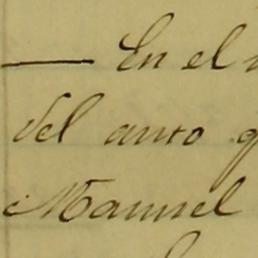 — En el
del auto q
Manuel